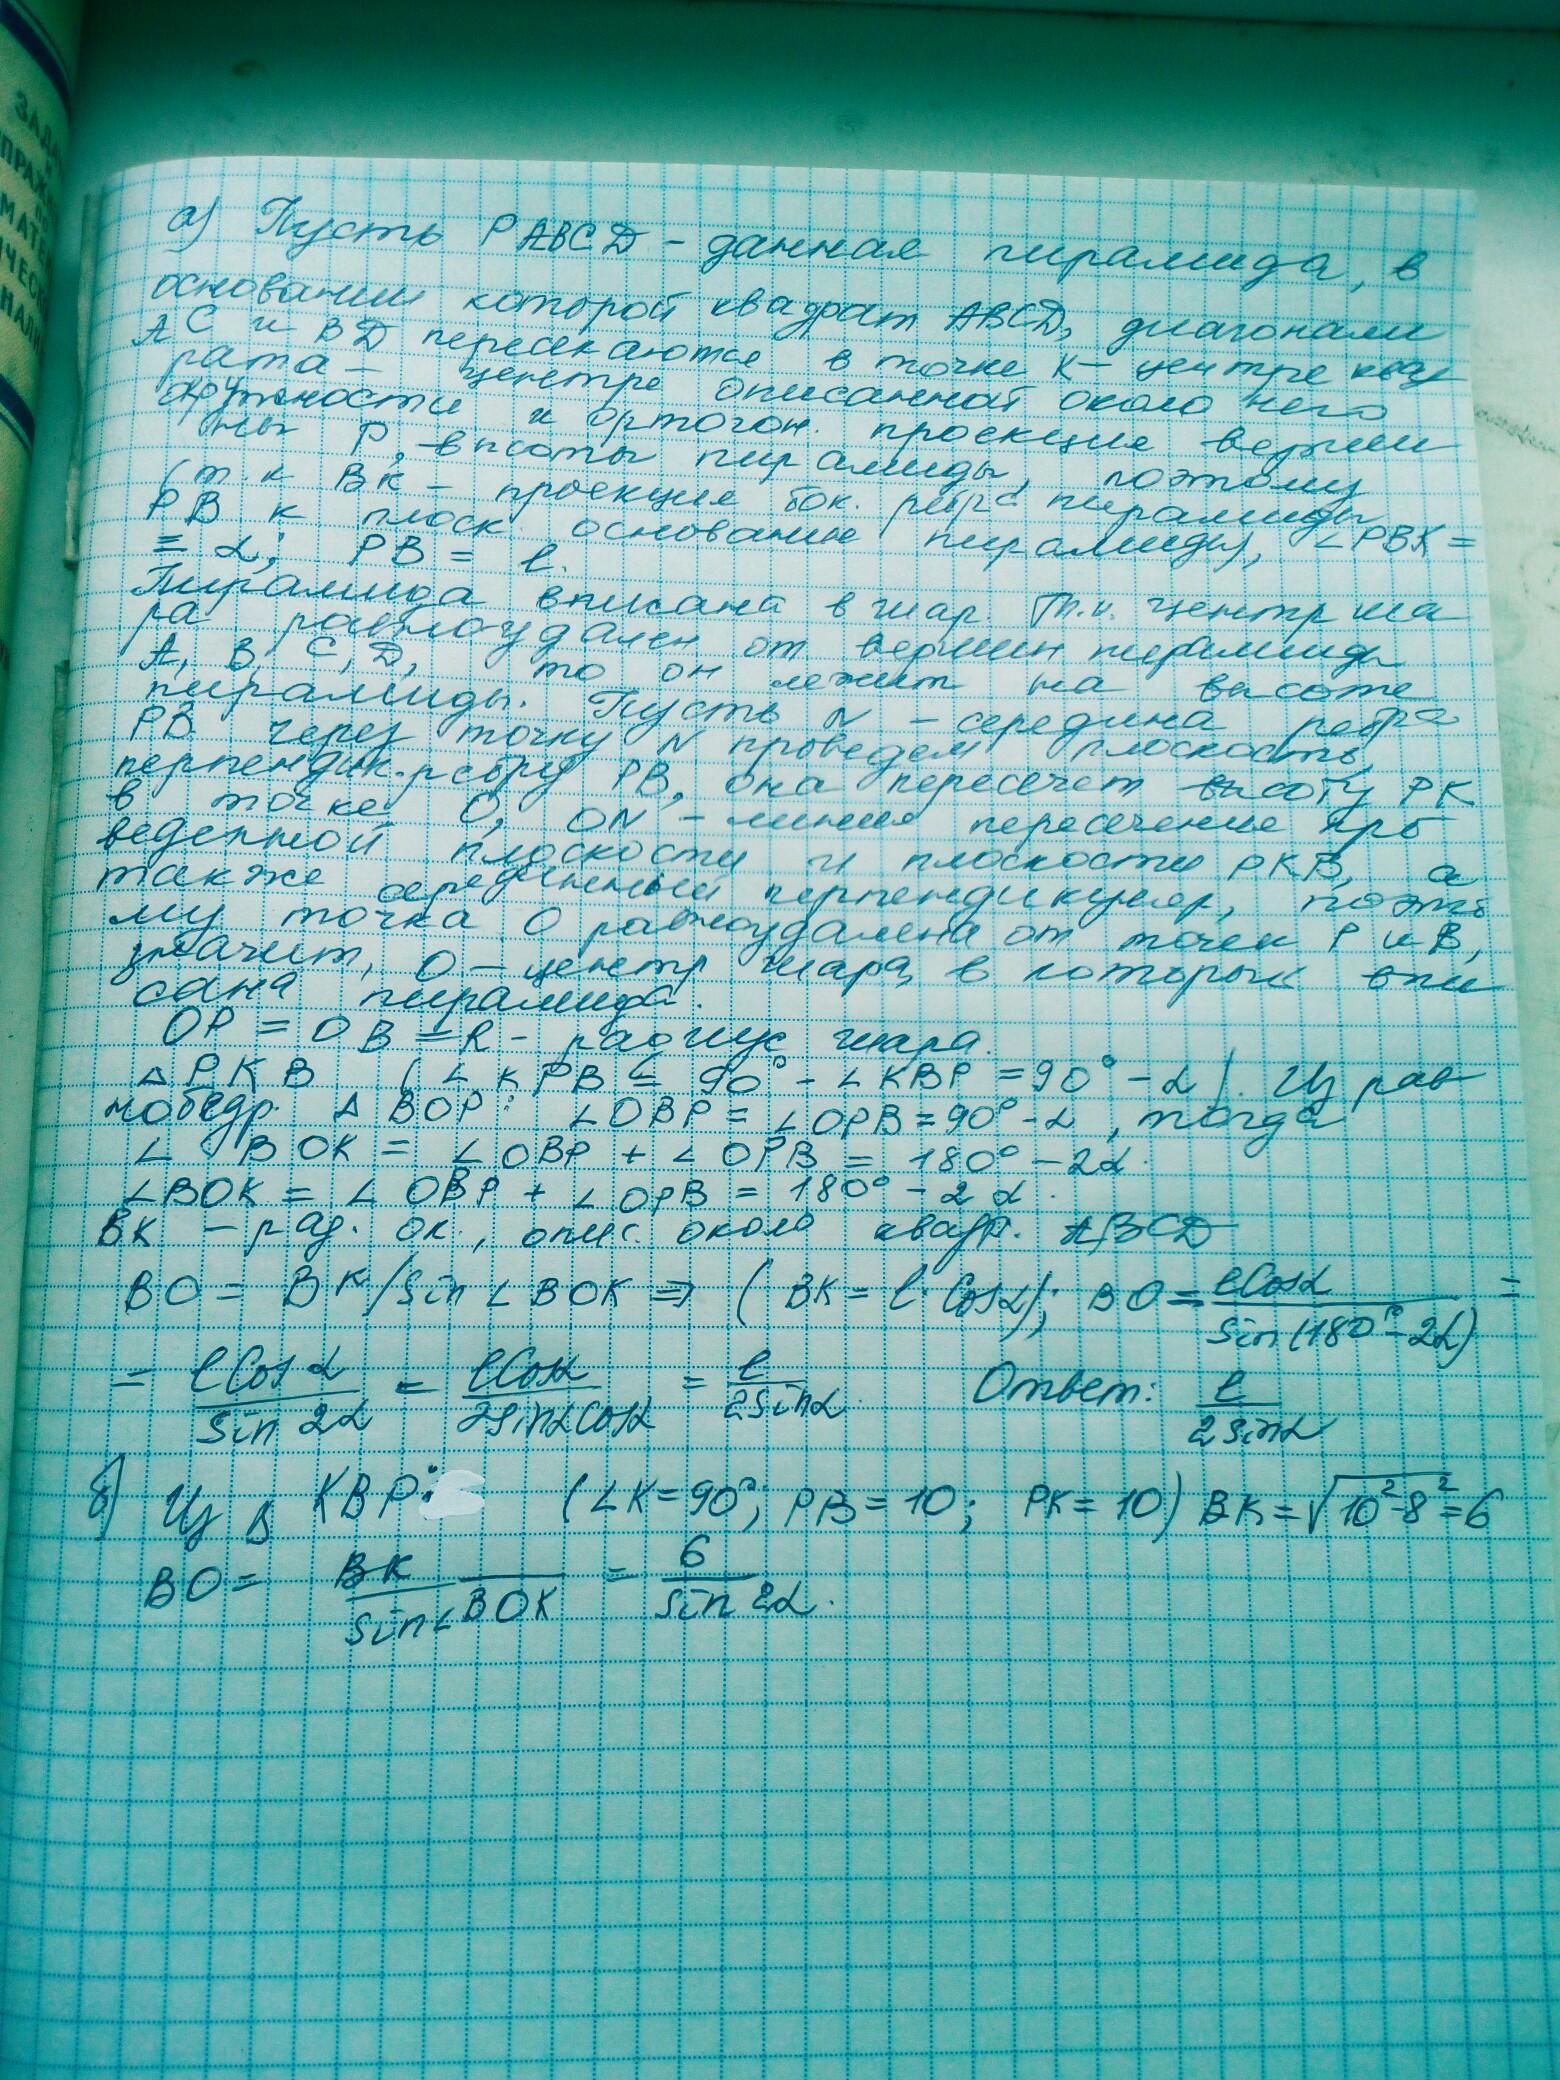 ЗАДА
ПРАЖ
ПО
МАТЕ
ЧЕСК
НАЛИ
а) Пусть PABCD - данная пирамида, в
основании которой квадрат ABCD, диагонали
AC и BD пересекаются в точке K - центре квад
рата - центре описанной около него
окружности и ортогон. проекция верши
ны P, высоты пирамиды, поэтому
(т.к BK - проекция бок. ребра пирамиды
PB к плоск. основание пирамиды), ∠PBK =
= α; PB = l.
Пирамида вписана в шар. Т.к. центр ша
ра равноудален от вершин пирамиды
A, B, C, D, то он лежит на высоте
пирамиды. Пусть N - середина ребра
PB через точку N проведем плоскость,
перпендик. ребру PB, она пересечет высоту PK
в точке O, ON - линия пересечение про
веденной плоскости и плоскости PKB, а
также серединный перпендикуляр, поэто
му точка O равноудалена от точек P и B,
значит, O - центр шара, в который впи
сана пирамида.
OP = OB = R - радиус шара.
△ PKB (∠KPB = 90° - ∠KBP = 90° - α). Из рав
нобедр. △ BOP: ∠OBP = ∠OPB = 90° - α, тогда
∠ BOK = ∠OBP + ∠OPB = 180° - 2α.
∠BOK = ∠ OBP + ∠OPB = 180° - 2α.
BK - рад. ок., опис. около квадр. ABCD
BO = BK/sin∠BOK ⇒ (BK = l·Cosα); BO = lCosα / sin(180° - 2α) =
= lCosα / sin 2α = lCosα / 2sinαCosα = l / 2sinα. Ответ: l / 2sinα
б) Из △ KBP: (∠K = 90°; PB = 10; PK = 10) BK = √10² - 8² = 6
BO = BK / sin∠BOK = 6 / sin 2α.